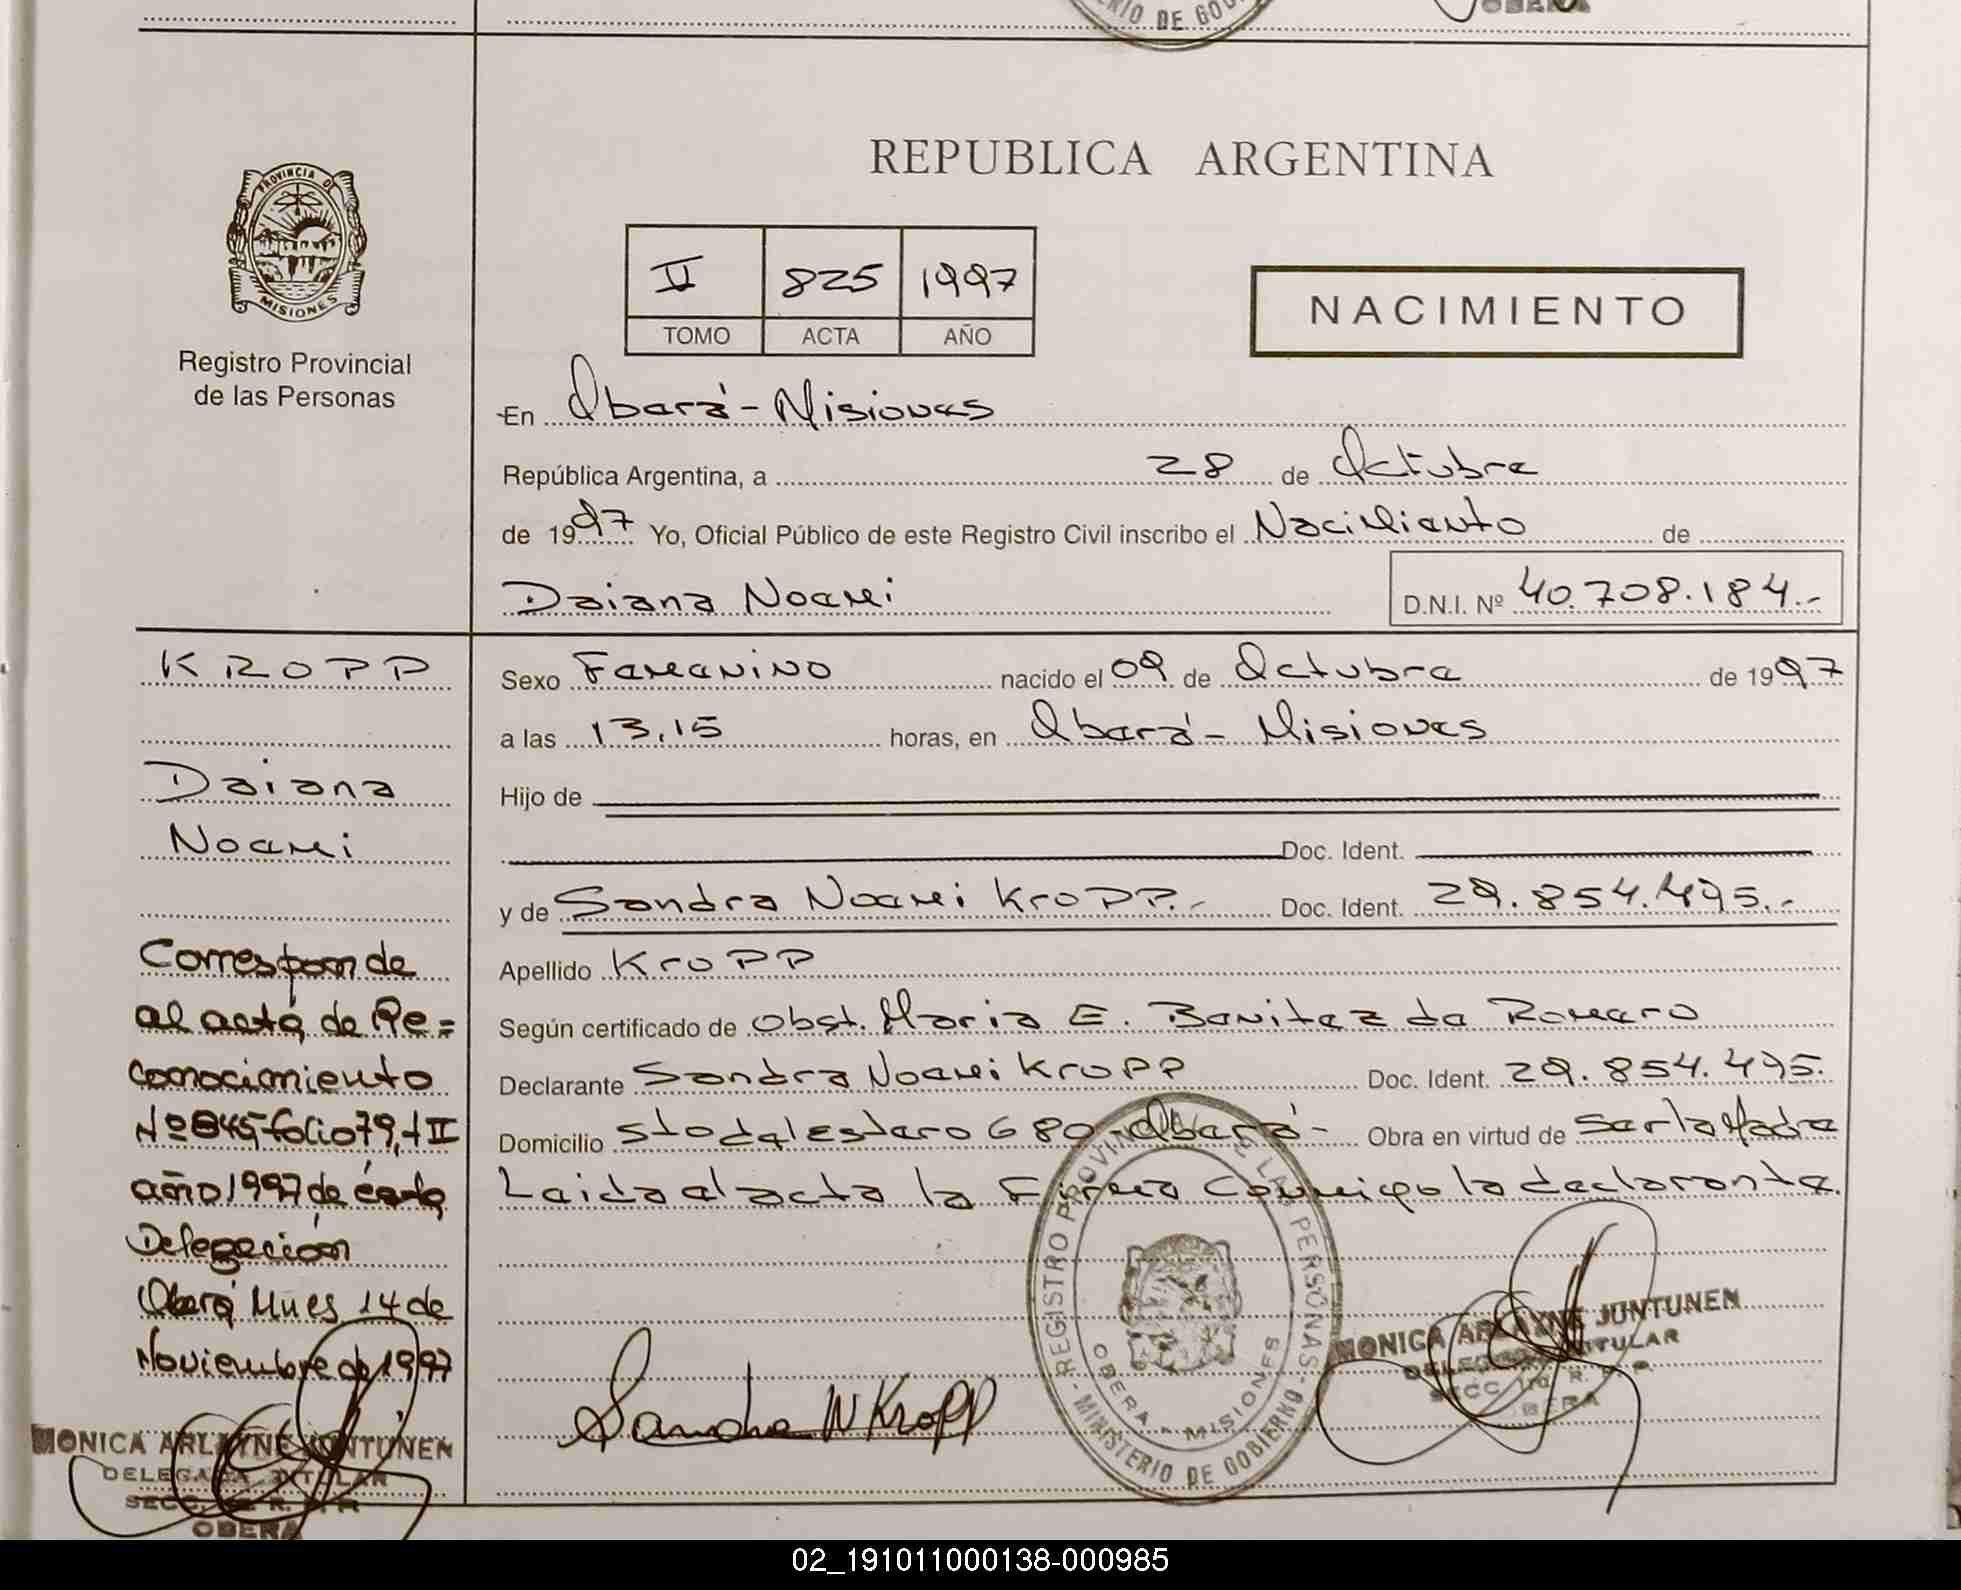 RIO DE GOB
OBERA
REPUBLICA ARGENTINA
PROVINCIA DE
MISIONES
Registro Provincial
de las Personas
II 825 1997
TOMO ACTA AÑO
NACIMIENTO
En Oberá - Misiones
República Argentina, a 28 de Octubre
de 1997 Yo, Oficial Público de este Registro Civil inscribo el Nacimiento de
Daiana Noemi D.N.I. Nº 40.708.184.-
KROPP
Daiana
Noemi
Corresponde
al acta de Re=
conocimiento
Nº 845 folio 79, t II
año 1997 de ésta
Delegación
Oberá Mnes 14 de
Noviembre de 1997
MONICA ARLAYNE JUNTUNEN
DELEGADA TITULAR
SECC. R.
OBERA
Sexo Femenino nacido el 09 de Octubre de 1997
a las 13,15 horas, en Oberá - Misiones
Hijo de
Doc. Ident.
y de Sandra Noemi Kropp.- Doc. Ident. 29.854.495.-
Apellido Kropp
Según certificado de obst. Maria E. Benitez de Romero
Declarante Sandra Noemi Kropp Doc. Ident. 29.854.495.
Domicilio Sto del Estero 680 - Oberá - Obra en virtud de ser la Madre
Leida el acta la Firma Conmigo la declarante.
REGISTRO PROVINCIAL DE LAS PERSONAS
OBERA - MISIONES
- MINISTERIO DE GOBIERNO -
Sandra N Kropp
MONICA ARLAYNE JUNTUNEN
DELEGADA TITULAR
SECC. 1ra. R.
OBERA
02_191011000138-000985